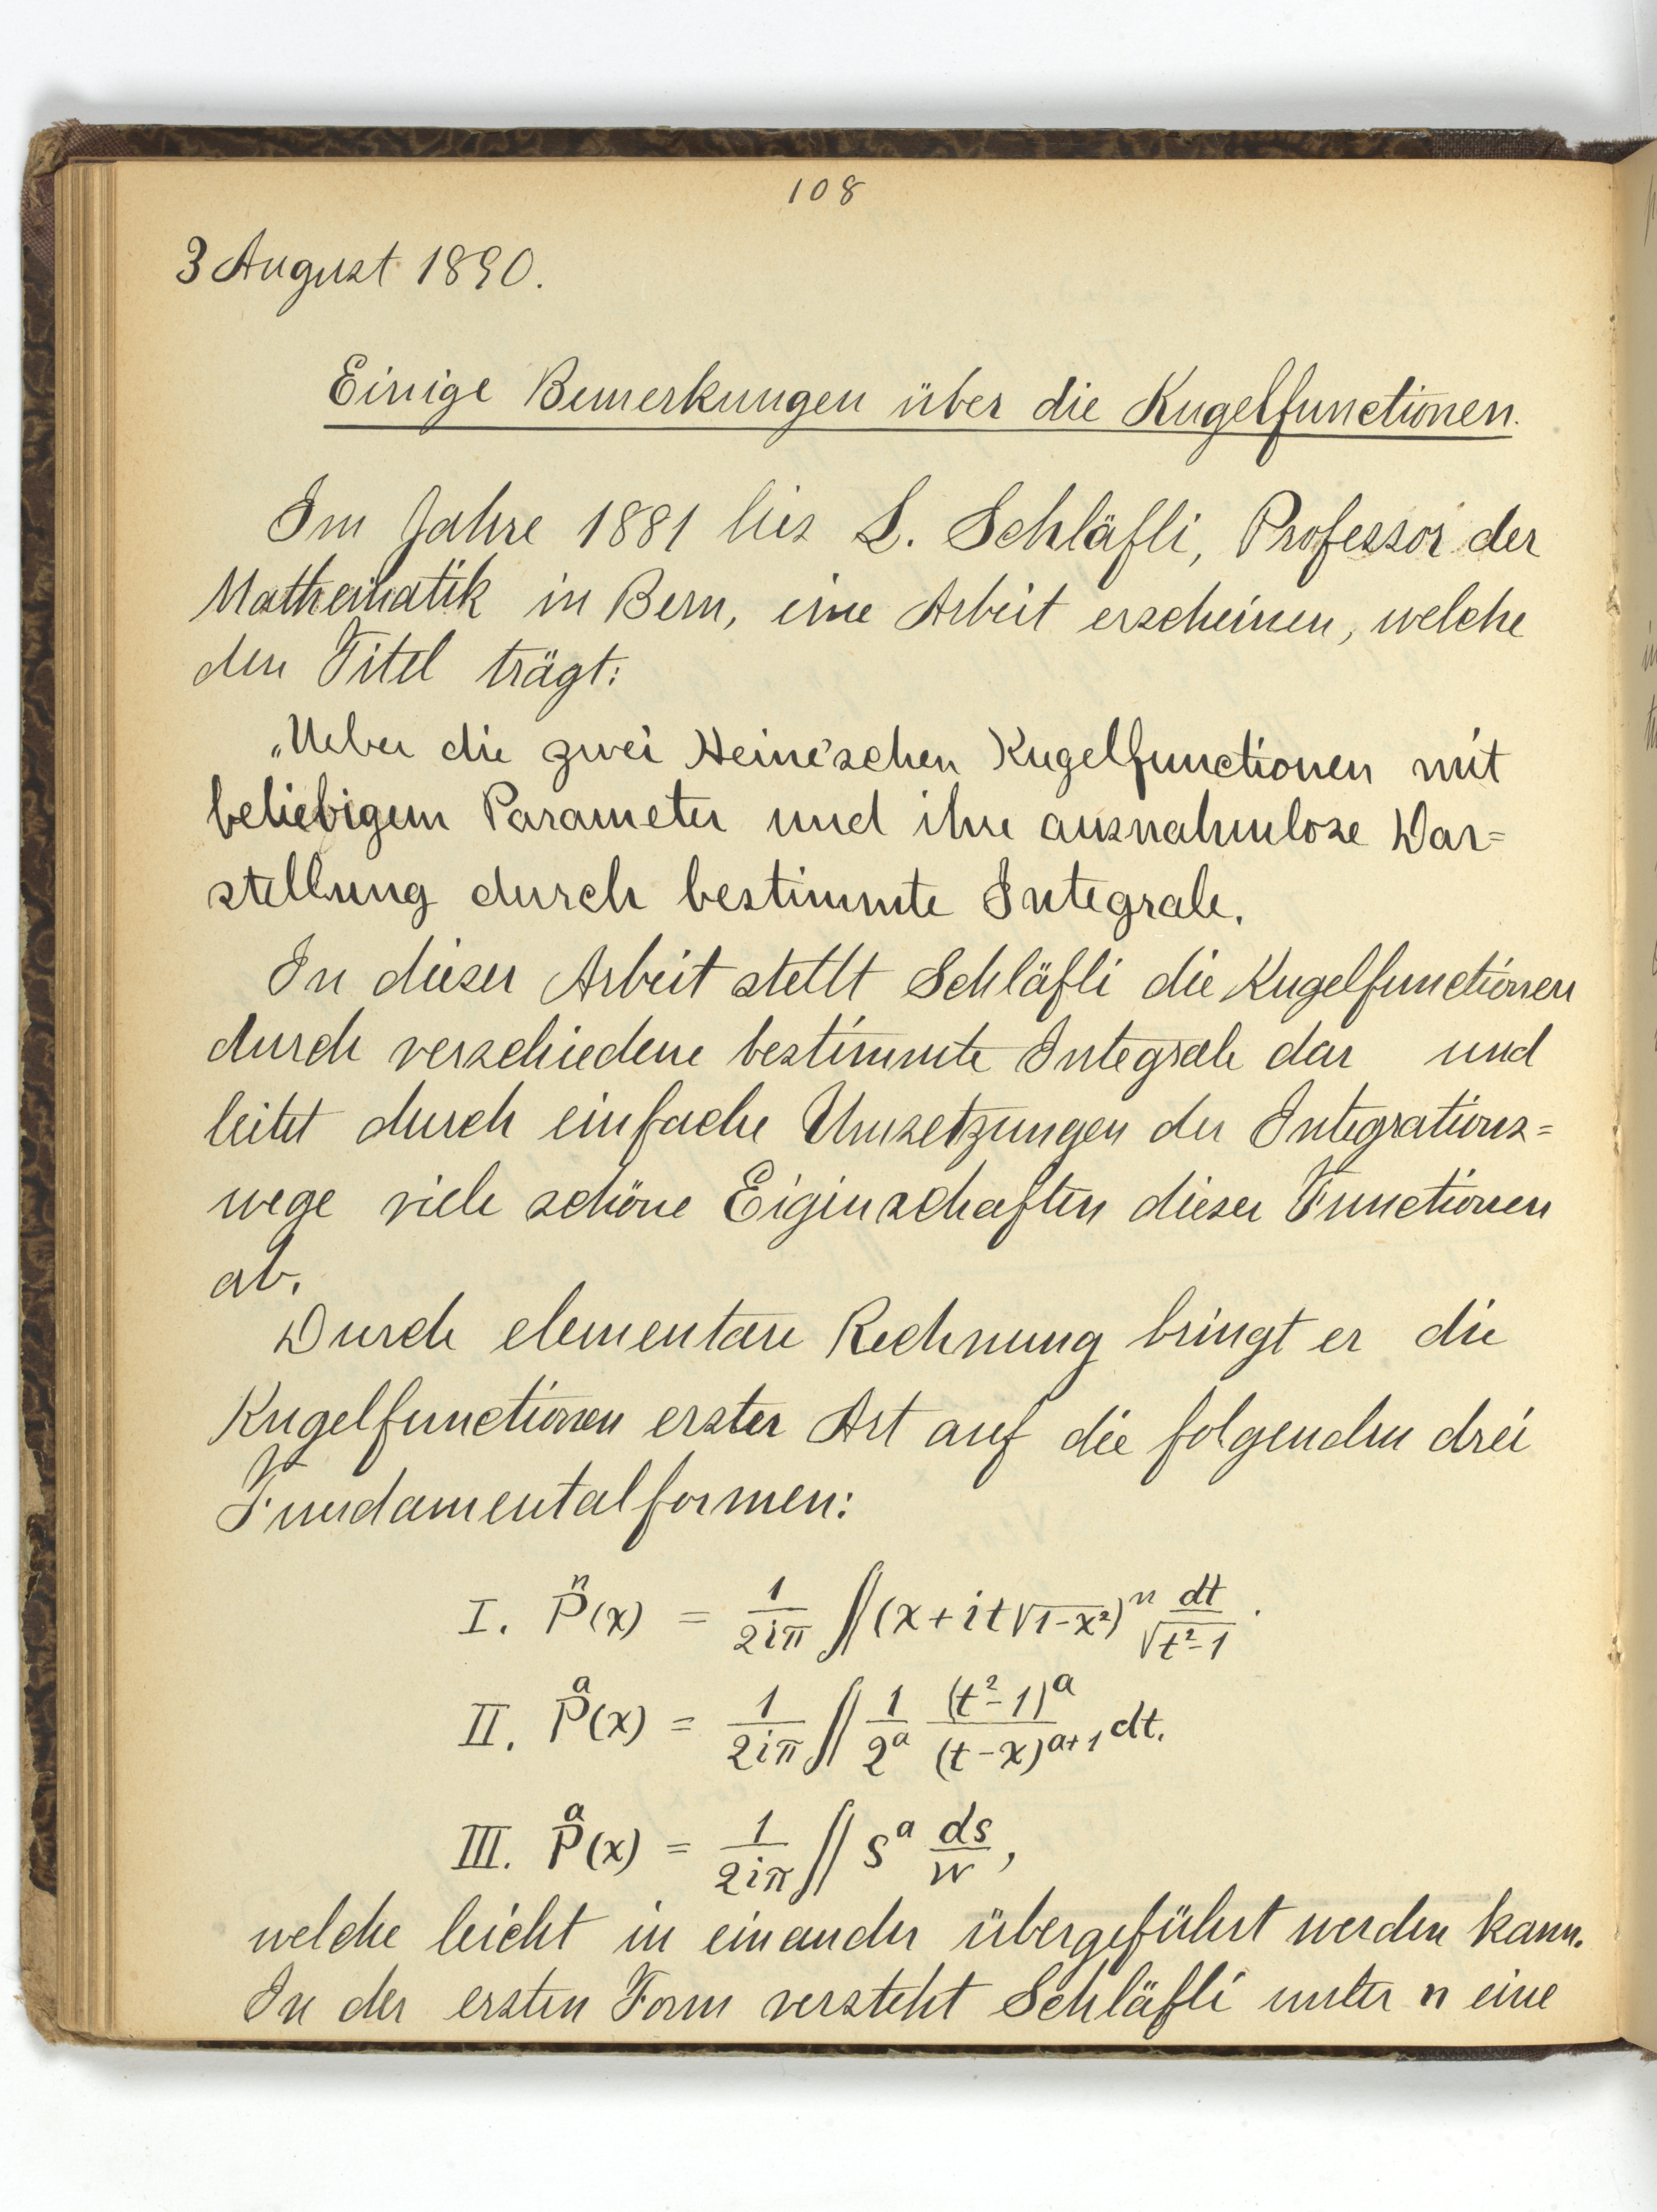 108
3 August 1890.
Einige Bemerkungen über die Kugelfunctionen.
Im Jahre 1881 lies L. Schläfli, Professor der
Mathematik in Bern, eine Arbeit erscheinen, welche
den Titel trägt:
„Ueber die zwei Heine'schen Kugelfunctionen mit
beliebigem Parameter und ihre ausnahmlose Dar=
stellung durch bestimmte Integrale.
In dieser Arbeit stellt Schläfli die Kugelfunctionen
durch verschiedene bestimmte Integrale dar und
leitet durch einfache Umsetzungen der Integrations=
wege viele schöne Eigenschaften dieser Functionen
ab.
Durch elementare Rechnung bringt er die
Kugelfunctionen erster Art auf die folgenden drei
Fundamentalformen:
I. P^n(x) = 1/(2iπ) ∬ (x + it√(1-x²))^n dt/√(t²-1).
II. P^a(x) = 1/(2iπ) ∬ 1/2^a (t²-1)^a/(t-x)^(a+1) dt.
III. P^a(x) = 1/(2iπ) ∬ s^a ds/W,
welche leicht in einander übergeführt werden kann.
In der ersten Form versteht Schläfli unter n eine